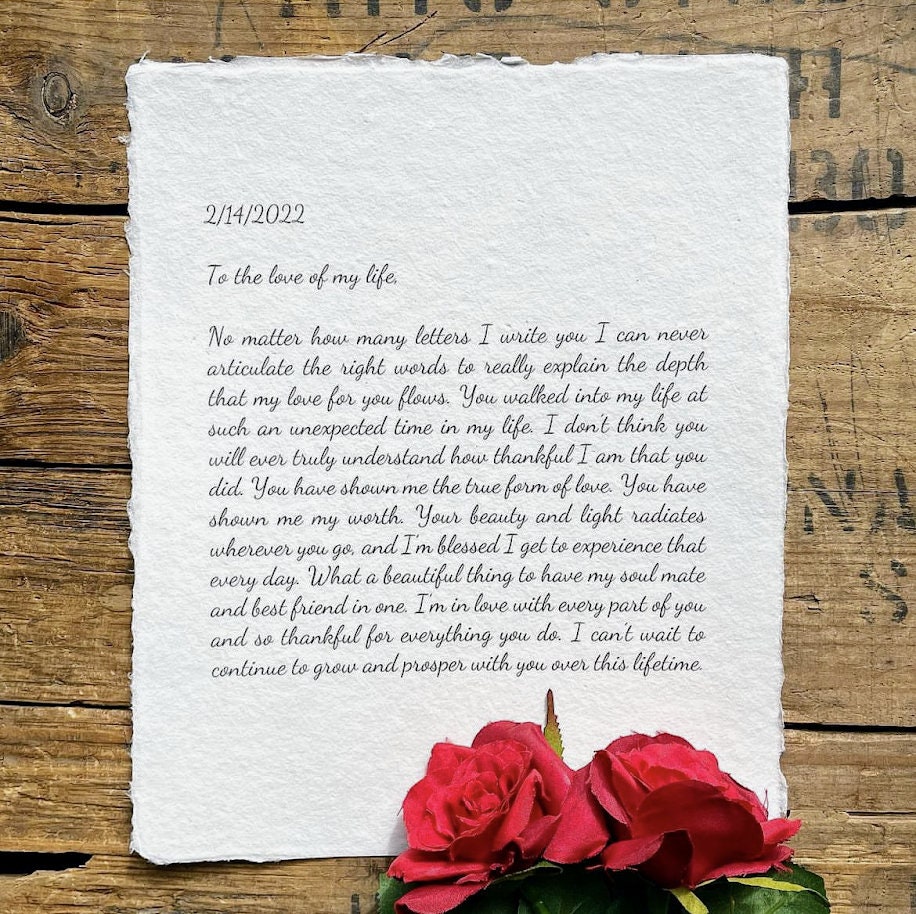 2/14/2022
To the love of my life,
No matter how many letters I write you I can never
articulate the right words to really explain the depth
that my love for you flows. You walked into my life at
such an unexpected time in my life. I don't think you
will ever truly understand how thankful I am that you
did. You have shown me the true form of love. You have
shown me my worth. Your beauty and light radiates
wherever you go, and I'm blessed I get to experience that
every day. What a beautiful thing to have my soul mate
and best friend in one. I'm in love with every part of you
and so thankful for everything you do. I can't wait to
continue to grow and prosper with you over this lifetime.